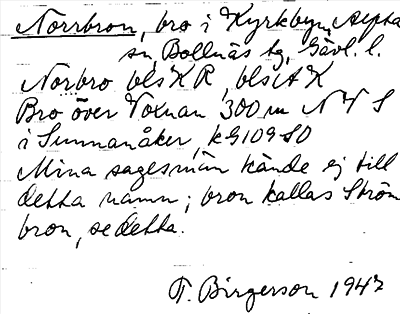 Norrbron, bro i Kyrkbyn, Alfta
sn, Bollnäs tg, Gävl. l.
Norbro bls K R, bls A K
Bro över Voxnan 300 m N V S
i Sunnanåker, kG109 SO
Mina sagesmän kände ej till
detta namn; bron kallas Ström
bron, se detta.
T. Birgerson 1947